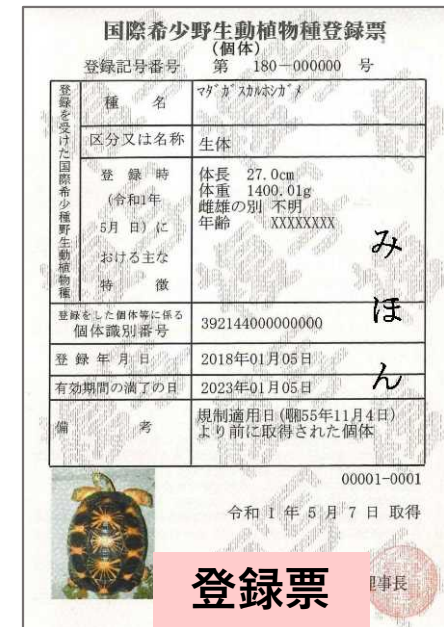 国際希少野生動植物種登録票
(個体)
登録記号番号 第 180-000000 号
登録を受けた国際希少野生動植物種
種 名
マダガスカルホシガメ
区分又は名称
生体
登 録 時
(令和1年
5月 日) に
おける主な
特 徴
体長 27.0cm
体重 1400.01g
雌雄の別 不明
年齢 XXXXXXXX
登録をした個体等に係る
個体識別番号
392144000000000
登 録 年 月 日
2018年01月05日
有効期間の満了の日
2023年01月05日
備 考
規制適用日(昭55年11月4日)
より前に取得された個体
みほん
00001-0001
令和 1 年 5 月 7 日 取得
理事長
登録票